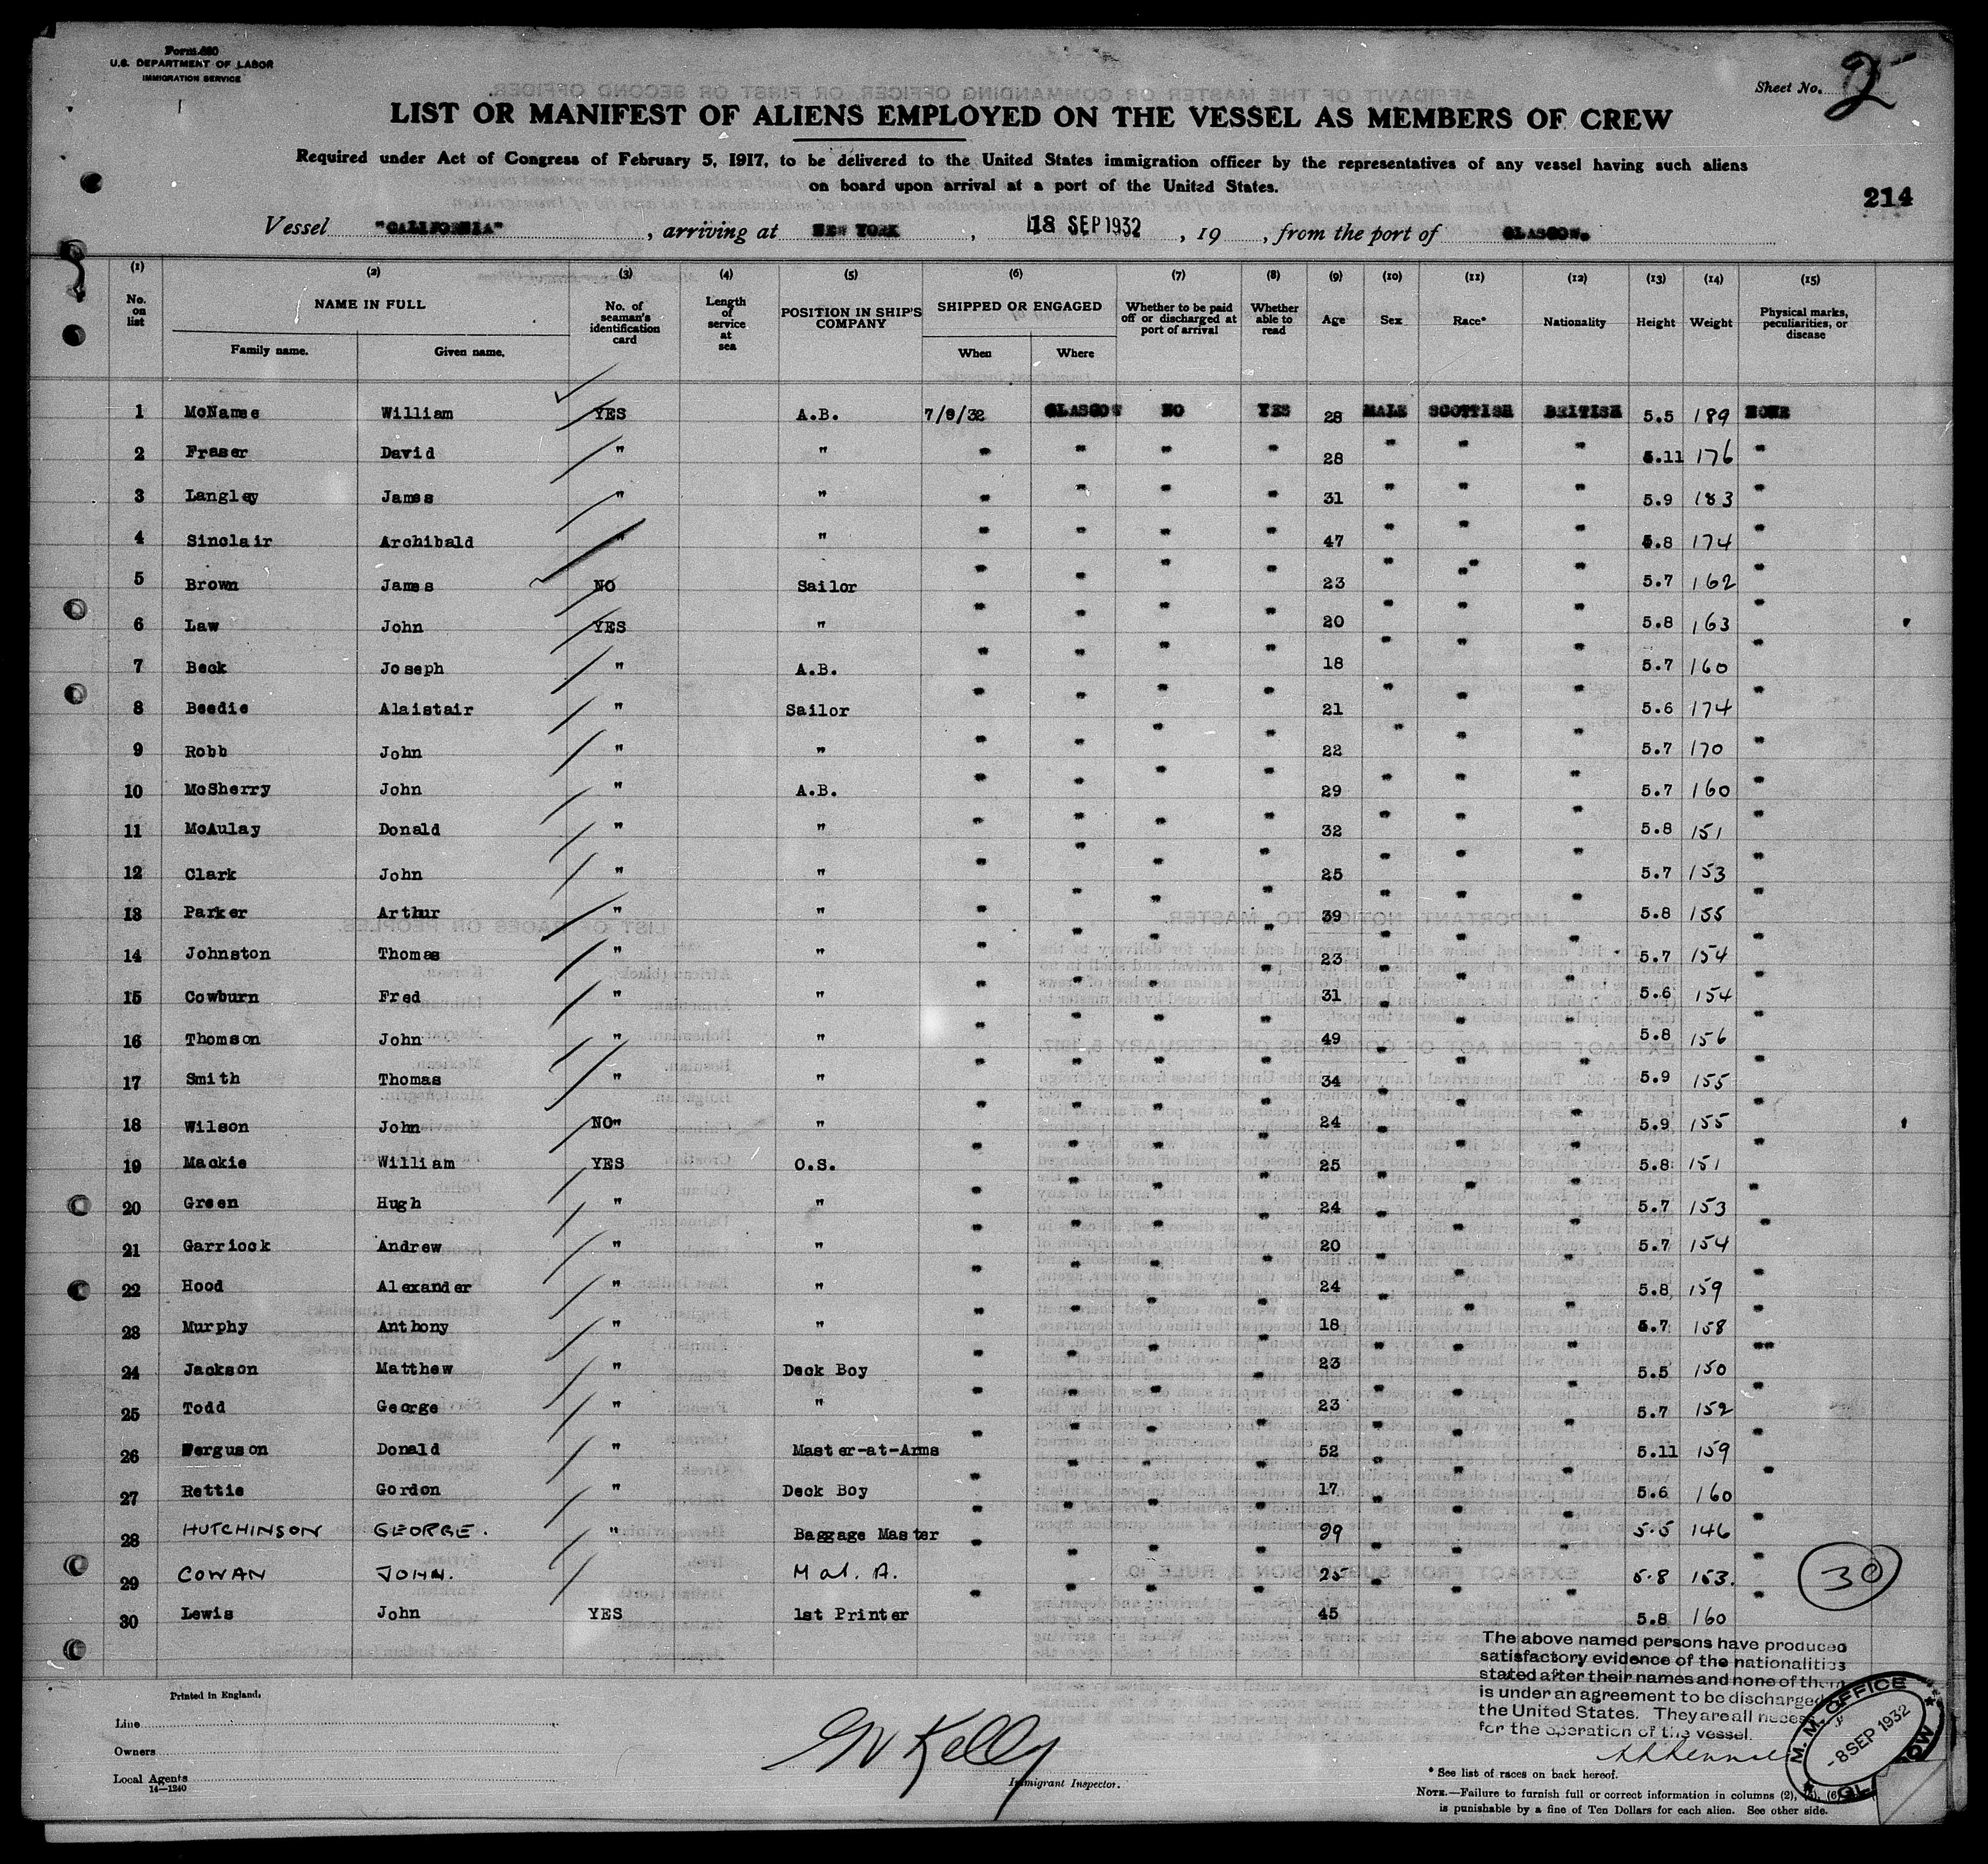 Form 680
U.S. DEPARTMENT OF LABOR
IMMIGRATION SERVICE
Sheet No. 2
LIST OR MANIFEST OF ALIENS EMPLOYED ON THE VESSEL AS MEMBERS OF CREW
Required under Act of Congress of February 5, 1917, to be delivered to the United States immigration officer by the representatives of any vessel having such aliens
on board upon arrival at a port of the United States.
214
Vessel "CALIFORNIA", arriving at NEW YORK, 18 SEP 1932, 19 , from the port of GLASGOW.
(1) (2) (3) (4) (5) (6) (7) (8) (9) (10) (11) (12) (13) (14) (15)
No. on list NAME IN FULL Family name. Given name. No. of seaman's identification card Length of service at sea POSITION IN SHIP'S COMPANY SHIPPED OR ENGAGED When Where Whether to be paid off or discharged at port of arrival Whether able to read Age Sex Race* Nationality Height Weight Physical marks, peculiarities, or disease
1 McNamee William YES A.B. 7/9/32 GLASGOW NO YES 28 MALE SCOTTISH BRITISH 5.5 189 NONE
2 Fraser David " " " " " " 28 " " " 5.11 176 "
3 Langley James " " " " " " 31 " " " 5.9 183 "
4 Sinclair Archibald " " " " " " 47 " " " 5.8 174 "
5 Brown James NO Sailor " " " " 23 " " " 5.7 162 "
6 Law John YES " " " " " 20 " " " 5.8 163 "
7 Beck Joseph " A.B. " " " " 18 " " " 5.7 160 "
8 Beedie Alaistair " Sailor " " " " 21 " " " 5.6 174 "
9 Robb John " " " " " " 22 " " " 5.7 170 "
10 McSherry John " A.B. " " " " 29 " " " 5.7 160 "
11 McAulay Donald " " " " " " 32 " " " 5.8 151 "
12 Clark John " " " " " " 25 " " " 5.7 153 "
13 Parker Arthur " " " " " " 39 " " " 5.8 155 "
14 Johnston Thomas " " " " " " 23 " " " 5.7 154 "
15 Cowburn Fred " " " " " " 31 " " " 5.6 154 "
16 Thomson John " " " " " " 49 " " " 5.8 156 "
17 Smith Thomas " " " " " " 34 " " " 5.9 155 "
18 Wilson John NO" " " " " " 24 " " " 5.9 155 "
19 Mackie William YES O.S. " " " " 25 " " " 5.8 151 "
20 Green Hugh " " " " " " 24 " " " 5.7 153 "
21 Garriock Andrew " " " " " " 20 " " " 5.7 154 "
22 Hood Alexander " " " " " " 24 " " " 5.8 159 "
23 Murphy Anthony " " " " " " 18 " " " 5.7 158 "
24 Jackson Matthew " Deck Boy " " " " 23 " " " 5.5 150 "
25 Todd George " " " " " " 23 " " " 5.7 152 "
26 Ferguson Donald " Master-at-Arms " " " " 52 " " " 5.11 159 "
27 Rettie Gordon " Deck Boy " " " " 17 " " " 5.6 160 "
28 HUTCHINSON GEORGE. " Baggage Master " " " " 29 " " " 5.5 146 "
29 COWAN JOHN. M at. A. " " " " 25 " " " 5.8 153. "
30 Lewis John YES 1st Printer " " " " 45 " " " 5.8 160 "
30
The above named persons have produced
satisfactory evidence of the nationalities
stated after their names and none of them
is under an agreement to be discharged
the United States. They are all necess
for the operation of the vessel.
M. M. OFFICE
-8 SEP 1932
Printed in England.
Line
Owners
Local Agents
14—1240
Kelly
Immigrant Inspector.
* See list of races on back hereof.
NOTE.—Failure to furnish full or correct information in columns (2), (5), (6)
is punishable by a fine of Ten Dollars for each alien. See other side.